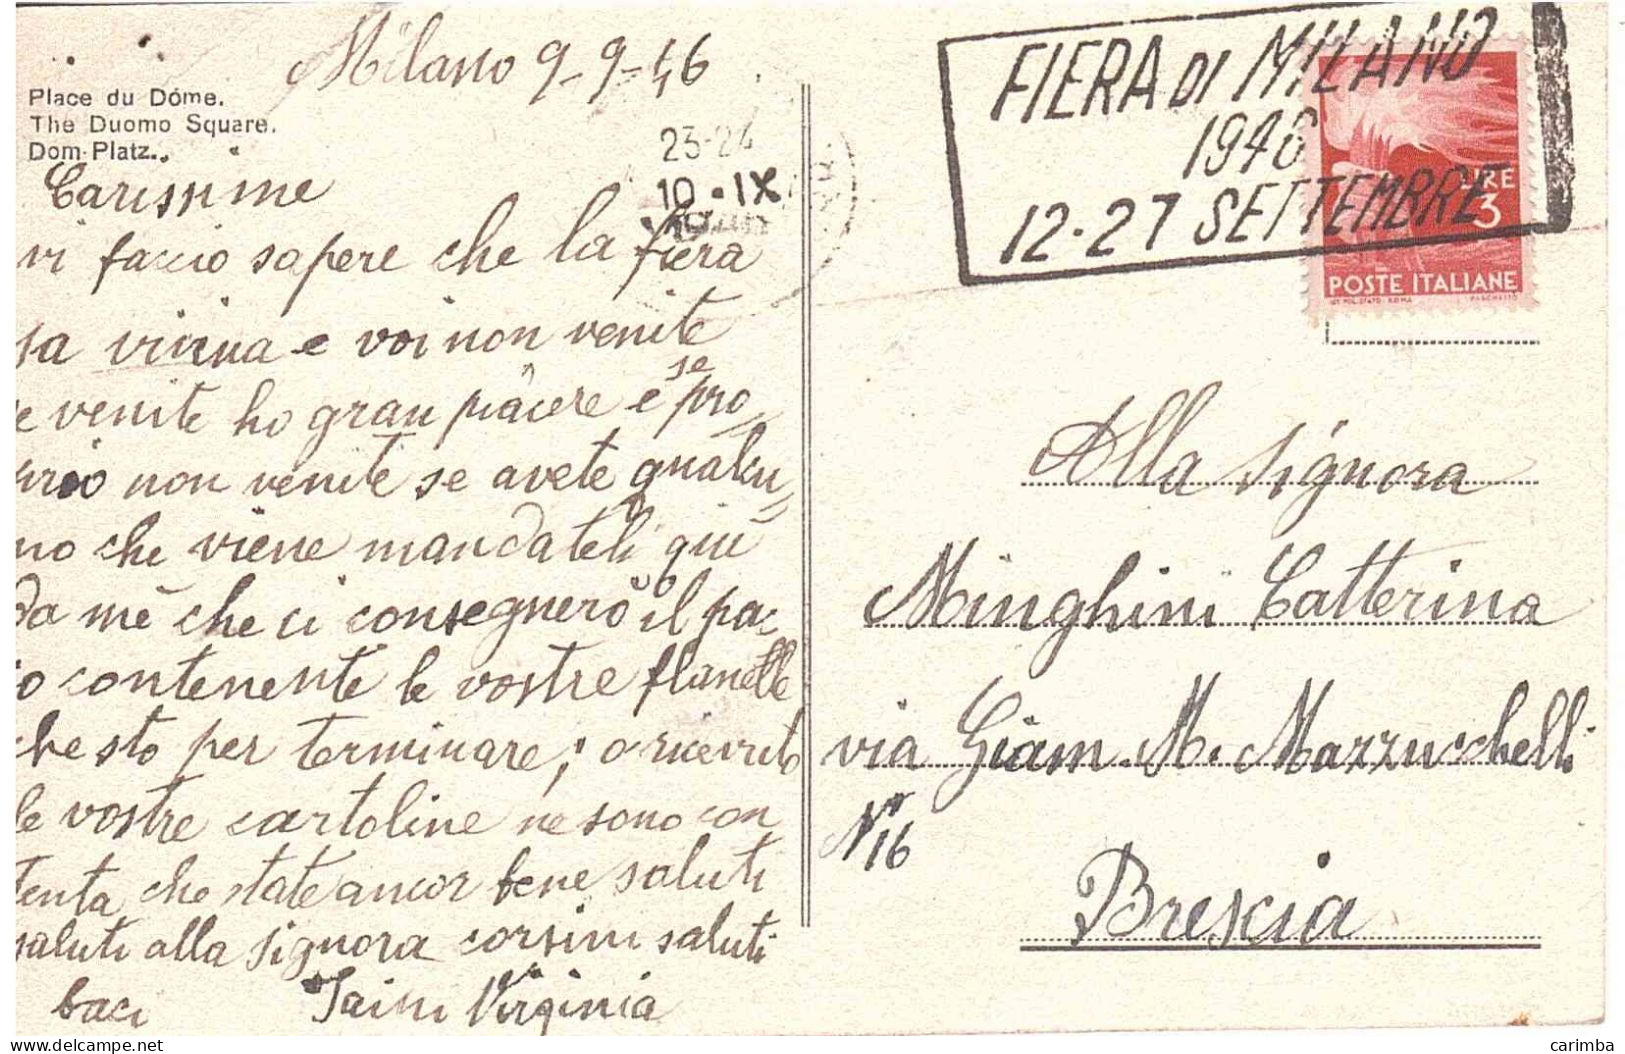 Milano 9-9-46
Place du Dôme.
The Duomo Square.
Dom-Platz.
23-24
10·IX
Carissime
vi faccio sapere che la fiera
sa vicina e voi non venite
se
e venite ho gran piacere e pro„
prio non venite se avete qualcu„
no che viene mandateli qui
da me che ci consegnerò il pac
o contenente le vostre flanelle
che sto per terminare; o ricevuto
le vostre cartoline ne sono con
tenta che state ancor bene saluti
saluti alla signora corsini saluti
baci Virginia
FIERA DI MILANO
1946
12-27 SETTEMBRE
LIRE
3
POSTE ITALIANE
Alla Signora
Minghini Catterina
via Giam. M. Mazzucchelli
N° 16
Brescia
carimba